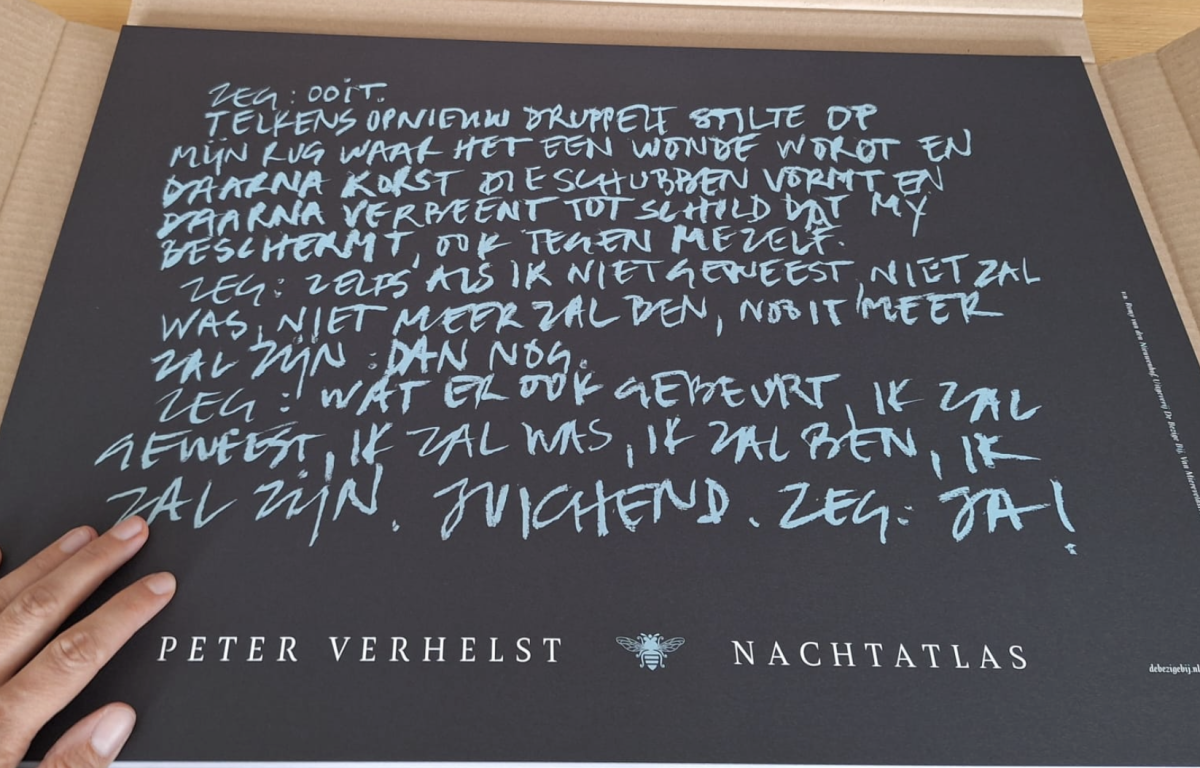 ZEG: OOIT.
TELKENS OPNIEUW DRUPPELT STILTE OP
MIJN RUG WAAR HET EEN WONDE WORDT EN
DAARNA KORST DIE SCHUBBEN VORMT EN
DAARNA VERBEENT TOT SCHILD DAT MIJ
BESCHERMT, OOK TEGEN MEZELF.
ZEG: ZELFS ALS IK NIET GEWEEST, NIET ZAL
WAS, NIET MEER ZAL BEN, NOOIT MEER
ZAL ZIJN: DAN NOG.
ZEG: WAT ER OOK GEBEURT, IK ZAL
GEWEEST, IK ZAL WAS, IK ZAL BEN, IK
ZAL ZIJN. JUICHEND. ZEG: JA!
PETER VERHELST NACHTATLAS
debezigebij.nl